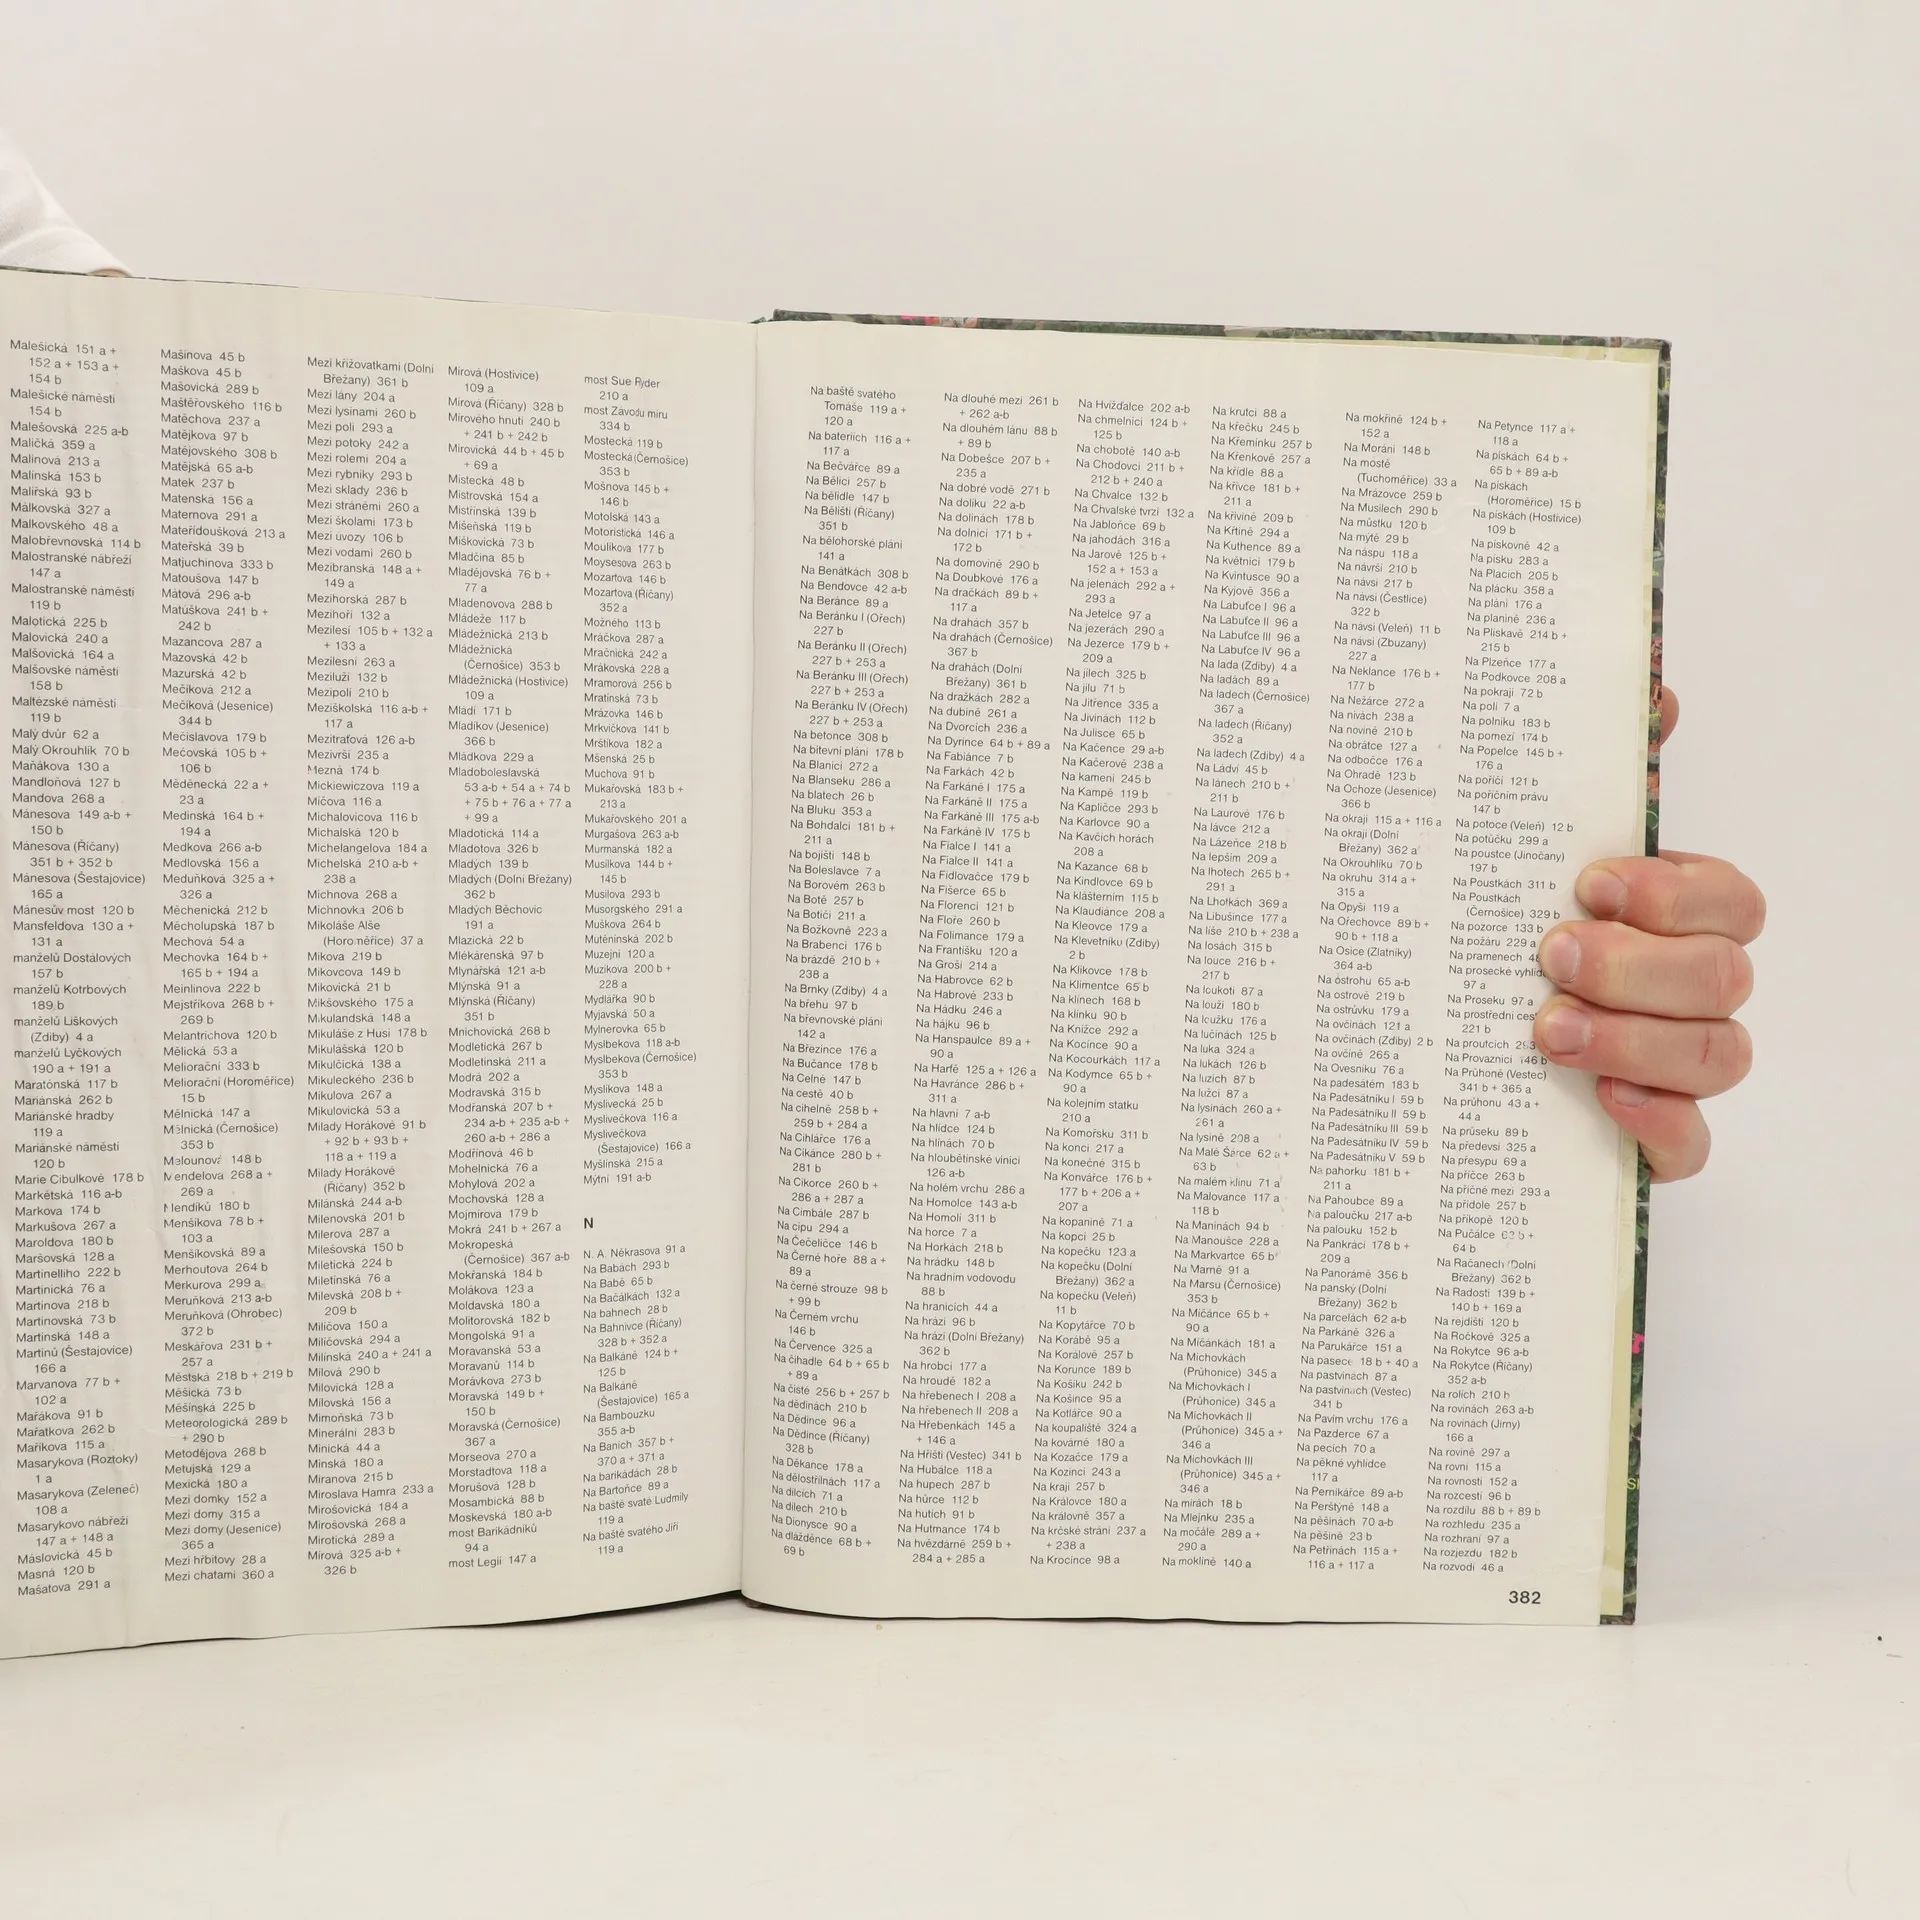 Malešická 151 a +
152 a + 153 a +
154 b
Malešické náměstí
154 b
Malešovská 225 a-b
Malička 359 a
Malinová 213 a
Malínská 153 b
Malířská 93 b
Málkovská 327 a
Malkovského 48 a
Malobřevnovská 114 b
Malostranské nábřeží
147 a
Malostranské náměstí
119 b
Malotická 225 b
Malovická 240 a
Malšovická 164 a
Malšovské náměstí
158 b
Maltézské náměstí
119 b
Malý dvůr 62 a
Malý Okrouhlík 70 b
Maňákova 130 a
Mandloňová 127 b
Mandova 268 a
Mánesova 149 a-b +
150 b
Mánesova (Říčany)
351 b + 352 b
Mánesova (Šestajovice)
165 a
Mánesův most 120 b
Mansfeldova 130 a +
131 a
manželů Dostálových
157 b
manželů Kotrbových
189 b
manželů Liškových
(Zdiby) 4 a
manželů Lyčkových
190 a + 191 a
Maratónská 117 b
Mariánská 262 b
Mariánské hradby
119 a
Mariánské náměstí
120 b
Marie Cibulkové 178 b
Markétská 116 a-b
Markova 174 b
Markušova 267 a
Maroldova 180 b
Maršovská 128 a
Martinelliho 222 b
Martinická 76 a
Martinova 218 b
Martinovská 73 b
Martinská 148 a
Martinů (Šestajovice)
166 a
Marvanova 77 b +
102 a
Mařákova 91 b
Mařatkova 262 b
Maříkova 115 a
Masarykova (Roztoky)
1 a
Masarykova (Zeleneč)
108 a
Masarykovo nábřeží
147 a + 148 a
Máslovická 45 b
Masná 120 b
Mašatova 291 a
Mašínova 45 b
Maškova 45 b
Mašovická 289 b
Maštěřovského 116 b
Matěchova 237 a
Matějkova 97 b
Matějovského 308 b
Matějská 65 a-b
Matek 237 b
Matenská 156 a
Maternova 291 a
Mateřídoušková 213 a
Mateřská 39 b
Matjuchinova 333 b
Matoušova 147 b
Mátová 296 a-b
Matúškova 241 b +
242 b
Mazancova 287 a
Mazovská 42 b
Mazurská 42 b
Mečíková 212 a
Mečíková (Jesenice)
344 b
Mečislavova 179 b
Mečovská 105 b +
106 b
Měděnecká 22 a +
23 a
Medinská 164 b +
194 a
Medkova 266 a-b
Medlovská 156 a
Meduňková 325 a +
326 a
Měchenická 212 b
Měcholupská 187 b
Mechová 54 a
Mechovka 164 b +
165 b + 194 a
Meinlinova 222 b
Mejstříkova 268 b +
269 b
Melantrichova 120 b
Mělická 53 a
Meliorační 333 b
Meliorační (Horoměřice)
15 b
Mělnická 147 a
Mělnická (Černošice)
353 b
Melounová 148 b
Mendelova 268 a +
269 a
Mendíků 180 b
Menšíkova 78 b +
103 a
Menšíkovská 89 a
Merhoutova 264 b
Merkurova 299 a
Meruňková 213 a-b
Meruňková (Ohrobec)
372 b
Meskářova 231 b +
257 a
Městská 218 b + 219 b
Měšická 73 b
Měšínská 225 b
Meteorologická 289 b
+ 290 b
Metodějova 268 b
Metujská 129 a
Mexická 180 a
Mezi domky 152 a
Mezi domy 315 a
Mezi domy (Jesenice)
365 a
Mezi hřbitovy 28 a
Mezi chatami 360 a
Mezi křižovatkami (Dolní
Břežany) 361 b
Mezi lány 204 a
Mezi lysinami 260 b
Mezi poli 293 a
Mezi potoky 242 a
Mezi rolemi 204 a
Mezi rybníky 293 b
Mezi sklady 236 b
Mezi stráněmi 260 a
Mezi školami 173 b
Mezi úvozy 106 b
Mezi vodami 260 b
Mezibranská 148 a +
149 a
Mezihorská 287 b
Mezihoří 132 a
Mezilesí 105 b + 132 a
+ 133 a
Mezilesní 263 a
Meziluží 132 b
Mezipolí 210 b
Meziškolská 116 a-b +
117 a
Mezitraťová 126 a-b
Mezivrší 235 a
Mezná 174 b
Mickiewiczova 119 a
Míčova 116 a
Michalovicova 116 b
Michalská 120 b
Michelangelova 184 a
Michelská 210 a-b +
238 a
Michnova 268 a
Michnovka 206 b
Mikoláše Alše
(Horoměřice) 37 a
Mikova 219 b
Mikovcova 149 b
Mikovická 21 b
Mikšovského 175 a
Mikulandská 148 a
Mikuláše z Husi 178 b
Mikulášská 120 b
Mikulčická 138 a
Mikuleckého 236 b
Mikulova 267 a
Mikulovická 53 a
Milady Horákové 91 b
+ 92 b + 93 b +
118 a + 119 a
Milady Horákové
(Říčany) 352 b
Milánská 244 a-b
Milenovská 201 b
Milerova 287 a
Milešovská 150 b
Miletická 224 b
Miletínská 76 a
Milevská 208 b +
209 b
Milíčova 150 a
Milíčovská 294 a
Milínská 240 a + 241 a
Milová 290 b
Milovická 128 a
Milovská 156 a
Mimoňská 73 b
Minerální 283 b
Minická 44 a
Minská 180 a
Miranova 215 b
Miroslava Hamra 233 a
Mirošovická 184 a
Mirošovská 268 a
Mirotická 289 a
Mírová 325 a-b +
326 b
Mírová (Hostivice)
109 a
Mírová (Říčany) 328 b
Mírového hnutí 240 b
+ 241 b + 242 b
Mírovická 44 b + 45 b
+ 69 a
Místecká 48 b
Mistrovská 154 a
Mistřínská 139 b
Mišeňská 119 b
Miškovická 73 b
Mladčina 85 b
Mladějovská 76 b +
77 a
Mladenovova 288 b
Mládeže 117 b
Mládežnická 213 b
Mládežnická
(Černošice) 353 b
Mládežnická (Hostivice)
109 a
Mládí 171 b
Mladíkov (Jesenice)
366 b
Mládkova 229 a
Mladoboleslavská
53 a-b + 54 a + 74 b
+ 75 b + 76 a + 77 a
+ 99 a
Mladotická 114 a
Mladotova 326 b
Mladých 139 b
Mladých (Dolní Břežany)
362 b
Mladých Běchovic
191 a
Mlazická 22 b
Mlékárenská 97 b
Mlynářská 121 a-b
Mlýnská 91 a
Mlýnská (Říčany)
351 b
Mnichovická 268 b
Modletická 267 b
Modletínská 211 a
Modrá 202 a
Modravská 315 b
Modřanská 207 b +
234 a-b + 235 a-b +
260 a-b + 286 a
Modřínová 46 b
Mohelnická 76 a
Mohylová 202 a
Mochovská 128 a
Mojmírova 179 b
Mokrá 241 b + 267 a
Mokropeská
(Černošice) 367 a-b
Mokřanská 184 b
Molákova 123 a
Moldavská 180 a
Molitorovská 182 b
Mongolská 91 a
Moravanská 53 a
Moravanů 114 b
Morávkova 273 b
Moravská 149 b +
150 b
Moravská (Černošice)
367 a
Morseova 270 a
Morstadtova 118 a
Morušová 128 b
Mosambická 88 b
Moskevská 180 a-b
most Barikádníků
94 a
most Legií 147 a
most Sue Ryder
210 a
most Závodu míru
334 b
Mostecká 119 b
Mostecká (Černošice)
353 b
Mošnova 145 b +
146 b
Motolská 143 a
Motoristická 146 a
Moulíkova 177 b
Moysesova 263 b
Mozartova 146 b
Mozartova (Říčany)
352 a
Možného 113 b
Mráčkova 287 a
Mračnická 242 a
Mrákovská 228 a
Mramorová 256 b
Mratínská 73 b
Mrázovka 146 b
Mrkvičkova 141 b
Mrštíkova 182 a
Mšenská 25 b
Muchova 91 b
Mukařovská 183 b +
213 a
Mukařovského 201 a
Murgašova 263 a-b
Murmanská 182 a
Musílkova 144 b +
145 b
Musilova 293 b
Musorgského 291 a
Muškova 264 b
Mutěnínská 202 b
Muzejní 120 a
Muzikova 200 b +
228 a
Mydlářka 90 b
Myjavská 50 a
Mylnerovka 65 b
Myslbekova 118 a-b
Myslbekova (Černošice)
353 b
Myslíkova 148 a
Myslivecká 25 b
Myslivečkova 116 a
Myslivečkova
(Šestajovice) 166 a
Myšlínská 215 a
Mýtní 191 a-b
N
N. A. Někrasova 91 a
Na Babách 293 b
Na Babě 65 b
Na Bačálkách 132 a
Na bahnech 28 b
Na Bahnivce (Říčany)
328 b + 352 a
Na Balkáně 124 b +
125 b
Na Balkáně
(Šestajovice) 165 a
Na Bambouzku
355 a-b
Na Baních 357 b +
370 a + 371 a
Na barikádách 28 b
Na Bartoňce 89 a
Na baště svaté Ludmily
119 a
Na baště svatého Jiří
119 a
Na baště svatého
Tomáše 119 a +
120 a
Na bateriích 116 a +
117 a
Na Bečvářce 89 a
Na Bělici 257 b
Na bělidle 147 b
Na Bělišti (Říčany)
351 b
Na bělohorské pláni
141 a
Na Benátkách 308 b
Na Bendovce 42 a-b
Na Beránce 89 a
Na Beránku I (Ořech)
227 b
Na Beránku II (Ořech)
227 b + 253 a
Na Beránku III (Ořech)
227 b + 253 a
Na Beránku IV (Ořech)
227 b + 253 a
Na betonce 308 b
Na bitevní pláni 178 b
Na Blanici 272 a
Na Blanseku 286 a
Na blatech 26 b
Na Bluku 353 a
Na Bohdalci 181 b +
211 a
Na bojišti 148 b
Na Boleslavce 7 a
Na Borovém 263 b
Na Botě 257 b
Na Botiči 211 a
Na Božkovně 223 a
Na Brabenci 176 b
Na brázdě 210 b +
238 a
Na Brnky (Zdiby) 4 a
Na břehu 97 b
Na břevnovské pláni
142 a
Na Březince 176 a
Na Bučance 178 b
Na Celné 147 b
Na cestě 40 b
Na cihelně 258 b +
259 b + 284 a
Na Cihlářce 176 a
Na Cikánce 280 b +
281 b
Na Cikorce 260 b +
286 a + 287 a
Na Cimbále 287 b
Na cípu 294 a
Na Čečeličce 146 b
Na Černé hoře 88 a +
89 a
Na černé strouze 98 b
+ 99 b
Na Černém vrchu
146 b
Na Července 325 a
Na čihadle 64 b + 65 b
+ 89 a
Na čisté 256 b + 257 b
Na dědinách 210 b
Na Dědince 96 a
Na Dědince (Říčany)
328 b
Na Děkance 178 a
Na dělostřílnách 117 a
Na dílcích 71 a
Na dílech 210 b
Na Dionysce 90 a
Na dlážděnce 68 b +
69 b
Na dlouhé mezi 261 b
+ 262 a-b
Na dlouhém lánu 88 b
+ 89 b
Na Dobešce 207 b +
235 a
Na dobré vodě 271 b
Na dolíku 22 a-b
Na dolinách 178 b
Na dolnici 171 b +
172 b
Na domovině 290 b
Na Doubkové 176 a
Na dračkách 89 b +
117 a
Na drahách 357 b
Na drahách (Černošice)
367 b
Na drahách (Dolní
Břežany) 361 b
Na dražkách 282 a
Na dubině 261 a
Na Dvorcích 236 a
Na Dyrince 64 b + 89 a
Na Fabiánce 7 b
Na Farkách 42 b
Na Farkáně I 175 a
Na Farkáně II 175 a
Na Farkáně III 175 a-b
Na Farkáně IV 175 b
Na Fialce I 141 a
Na Fialce II 141 a
Na Fidlovačce 179 b
Na Fišerce 65 b
Na Florenci 121 b
Na Floře 260 b
Na Folimance 179 a
Na Františku 120 a
Na Groši 214 a
Na Habrovce 62 b
Na Habrové 233 b
Na Hádku 246 a
Na hájku 96 b
Na Hanspaulce 89 a +
90 a
Na Harfě 125 a + 126 a
Na Havránce 286 b +
311 a
Na hlavní 7 a-b
Na hlídce 124 b
Na hlínách 70 b
Na hloubětínské vinici
126 a-b
Na holém vrchu 286 a
Na Homolce 143 a-b
Na Homoli 311 b
Na horce 7 a
Na Horkách 218 b
Na hrádku 148 b
Na hradním vodovodu
88 b
Na hranicích 44 a
Na hrázi 96 b
Na hrázi (Dolní Břežany)
362 b
Na hrobci 177 a
Na hroudě 182 a
Na hřebenech I 208 a
Na hřebenech II 208 a
Na Hřebenkách 145 a
+ 146 a
Na Hřišti (Vestec) 341 b
Na Hubálce 118 a
Na hupech 287 b
Na hůrce 112 b
Na hutích 91 b
Na Hutmance 174 b
Na hvězdárně 259 b +
284 a + 285 a
Na Hvížďalce 202 a-b
Na chmelnici 124 b +
125 b
Na chobotě 140 a-b
Na Chodovci 211 b +
212 b + 240 a
Na Chvalce 132 b
Na Chvalské tvrzi 132 a
Na Jabloňce 69 b
Na jahodách 316 a
Na Jarově 125 b +
152 a + 153 a
Na jelenách 292 a +
293 a
Na Jetelce 97 a
Na jezerách 290 a
Na Jezerce 179 b +
209 a
Na jílech 325 b
Na jílu 71 b
Na Jitřence 335 a
Na Jivinách 112 b
Na Julisce 65 b
Na Kačence 29 a-b
Na Kačerově 238 a
Na kameni 245 b
Na Kampě 119 b
Na Kapličce 293 b
Na Karlovce 90 a
Na Kavčích horách
208 a
Na Kazance 68 b
Na Kindlovce 69 b
Na klášterním 115 b
Na Klaudiánce 208 a
Na Kleovce 179 a
Na Klevetníku (Zdiby)
2 b
Na Klikovce 178 b
Na Klimentce 65 b
Na klínech 168 b
Na klínku 90 b
Na Knížce 292 a
Na Kocínce 90 a
Na Kocourkách 117 a
Na Kodymce 65 b +
90 a
Na kolejním statku
210 a
Na Komořsku 311 b
Na konci 217 a
Na konečné 315 b
Na Konvářce 176 b +
177 b + 206 a +
207 a
Na kopanině 71 a
Na kopci 25 b
Na kopečku 123 a
Na kopečku (Dolní
Břežany) 362 a
Na kopečku (Veleň)
11 b
Na Kopytářce 70 b
Na Korábě 95 a
Na Korálově 257 b
Na Korunce 189 b
Na Košíku 242 b
Na Košince 95 a
Na Kotlářce 90 a
Na koupališti 324 a
Na kovárně 180 a
Na Kozačce 179 a
Na Kozinci 243 a
Na kraji 257 b
Na Královce 180 a
Na královně 357 a
Na krčské stráni 237 a
+ 238 a
Na Krocínce 98 a
Na krutci 88 a
Na křečku 245 b
Na Křemínku 257 b
Na Křenkově 257 a
Na křídle 88 a
Na křivce 181 b +
211 a
Na křivině 209 b
Na Křtině 294 a
Na Kuthence 89 a
Na květnici 179 b
Na Kvintusce 90 a
Na Kyjově 356 a
Na Labuťce I 96 a
Na Labuťce II 96 a
Na Labuťce III 96 a
Na Labuťce IV 96 a
Na lada (Zdiby) 4 a
Na ladách 89 a
Na ladech (Černošice)
367 a
Na ladech (Říčany)
352 a
Na ladech (Zdiby) 4 a
Na Ládví 45 b
Na lánech 210 b +
211 b
Na Laurové 176 b
Na lávce 212 a
Na Lázeňce 218 b
Na lepším 209 a
Na lhotech 265 b +
291 a
Na Lhotkách 369 a
Na Libušince 177 a
Na líše 210 b + 238 a
Na losách 315 b
Na louce 216 b +
217 b
Na loukoti 87 a
Na louži 180 b
Na loužku 176 a
Na lučinách 125 b
Na luka 324 a
Na lukách 126 b
Na luzích 87 b
Na lužci 87 a
Na lysinách 260 a +
261 a
Na lysině 208 a
Na Malé Šárce 62 a +
63 b
Na malém klínu 71 a
Na Malovance 117 a
118 b
Na Maninách 94 b
Na Manoušce 228 a
Na Markvartce 65 b
Na Marně 91 a
Na Marsu (Černošice)
353 b
Na Míčánce 65 b +
90 a
Na Míčánkách 181 a
Na Michovkách
(Průhonice) 345 a
Na Michovkách I
(Průhonice) 345 a
Na Michovkách II
(Průhonice) 345 a +
346 a
Na Michovkách III
(Průhonice) 345 a +
346 a
Na mírách 18 b
Na Mlejnku 235 a
Na močále 289 a +
290 a
Na moklině 140 a
Na mokřině 124 b +
152 a
Na Moráni 148 b
Na mostě
(Tuchoměřice) 33 a
Na Mrázovce 259 b
Na Musilech 290 b
Na můstku 120 b
Na mýtě 29 b
Na náspu 118 a
Na návrší 210 b
Na návsi 217 b
Na návsi (Čestlice)
322 b
Na návsi (Veleň) 11 b
Na návsi (Zbuzany)
227 a
Na Neklance 176 b +
177 b
Na Nežárce 272 a
Na nivách 238 a
Na novině 210 b
Na obrátce 127 a
Na odbočce 176 a
Na Ohradě 123 b
Na Ochoze (Jesenice)
366 b
Na okraji 115 a + 116 a
Na okraji (Dolní
Břežany) 362 a
Na Okrouhlíku 70 b
Na okruhu 314 a +
315 a
Na Opyši 119 a
Na Ořechovce 89 b +
90 b + 118 a
Na Osice (Zlatníky)
364 a-b
Na ostrohu 65 a-b
Na ostrově 219 b
Na ostrůvku 179 a
Na ovčinách 121 a
Na ovčinách (Zdiby) 2 b
Na ovčíně 265 a
Na Ovesníku 76 a
Na padesátém 183 b
Na Padesátníku I 59 b
Na Padesátníku II 59 b
Na Padesátníku III 59 b
Na Padesátníku IV 59 b
Na Padesátníku V 59 b
Na pahorku 181 b +
211 a
Na Pahoubce 89 a
Na paloučku 217 a-b
Na palouku 152 b
Na Pankráci 178 b +
209 a
Na Panorámě 356 b
Na panský (Dolní
Břežany) 362 b
Na parcelách 62 a-b
Na Parkáně 326 a
Na Parukářce 151 a
Na pasece 18 b + 40 a
Na pastvinách 87 a
Na pastvinách (Vestec)
341 b
Na Pavím vrchu 176 a
Na Pazderce 67 a
Na pecích 70 a
Na pěkné vyhlídce
117 a
Na Pernikářce 89 a-b
Na Perštýně 148 a
Na pěšinách 70 a-b
Na pěšině 23 b
Na Petřinách 115 a +
116 a + 117 a
Na Petynce 117 a +
118 a
Na pískách 64 b +
65 b + 89 a-b
Na pískách
(Horoměřice) 15 b
Na pískách (Hostivice)
109 b
Na pískovně 42 a
Na písku 283 a
Na Placích 205 b
Na plácku 358 a
Na pláni 176 a
Na planině 236 a
Na Plískavě 214 b +
215 b
Na Plzeňce 177 a
Na Podkovce 208 a
Na pokraji 72 b
Na poli 7 a
Na polníku 183 b
Na pomezí 174 b
Na Popelce 145 b +
176 a
Na poříčí 121 b
Na poříčním právu
147 b
Na potoce (Veleň) 12 b
Na potůčku 299 a
Na poustce (Jinočany)
197 b
Na Poustkách 311 b
Na Poustkách
(Černošice) 329 b
Na pozorce 133 b
Na požáru 229 a
Na pramenech
Na prosecké
97 a
Na Proseku 97 a
Na prostřední
221 b
Na proutcích
Na Provaznici 146 b
Na Průhoně (Vestec)
341 b + 365 a
Na průhonu 43 a +
44 a
Na průseku 89 b
Na předevsi 325 a
Na přesypu 69 a
Na příčce 263 b
Na příčné mezi 293 a
Na přídole 257 b
Na příkopě 120 b
Na Pučálce 63 b +
64 b
Na Račanech (Dolní
Břežany) 362 b
Na Radosti 139 b +
140 b + 169 a
Na rejdišti 120 b
Na Ročkově 325 a
Na Rokytce 96 a-b
Na Rokytce (Říčany)
352 a-b
Na rolích 210 b
Na rovinách 263 a-b
Na rovinách (Jirny)
166 a
Na rovině 297 a
Na rovni 115 a
Na rovnosti 152 a
Na rozcestí 96 b
Na rozdílu 88 b + 89 b
Na rozhledu 235 a
Na rozhraní 97 a
Na rozjezdu 182 b
Na rozvodí 46 a
382